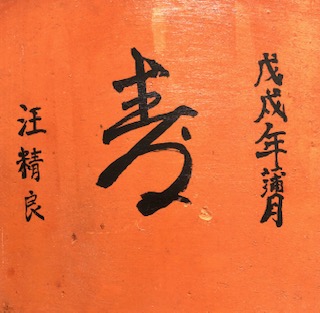 戊戌年蒲月
寿
汪精良